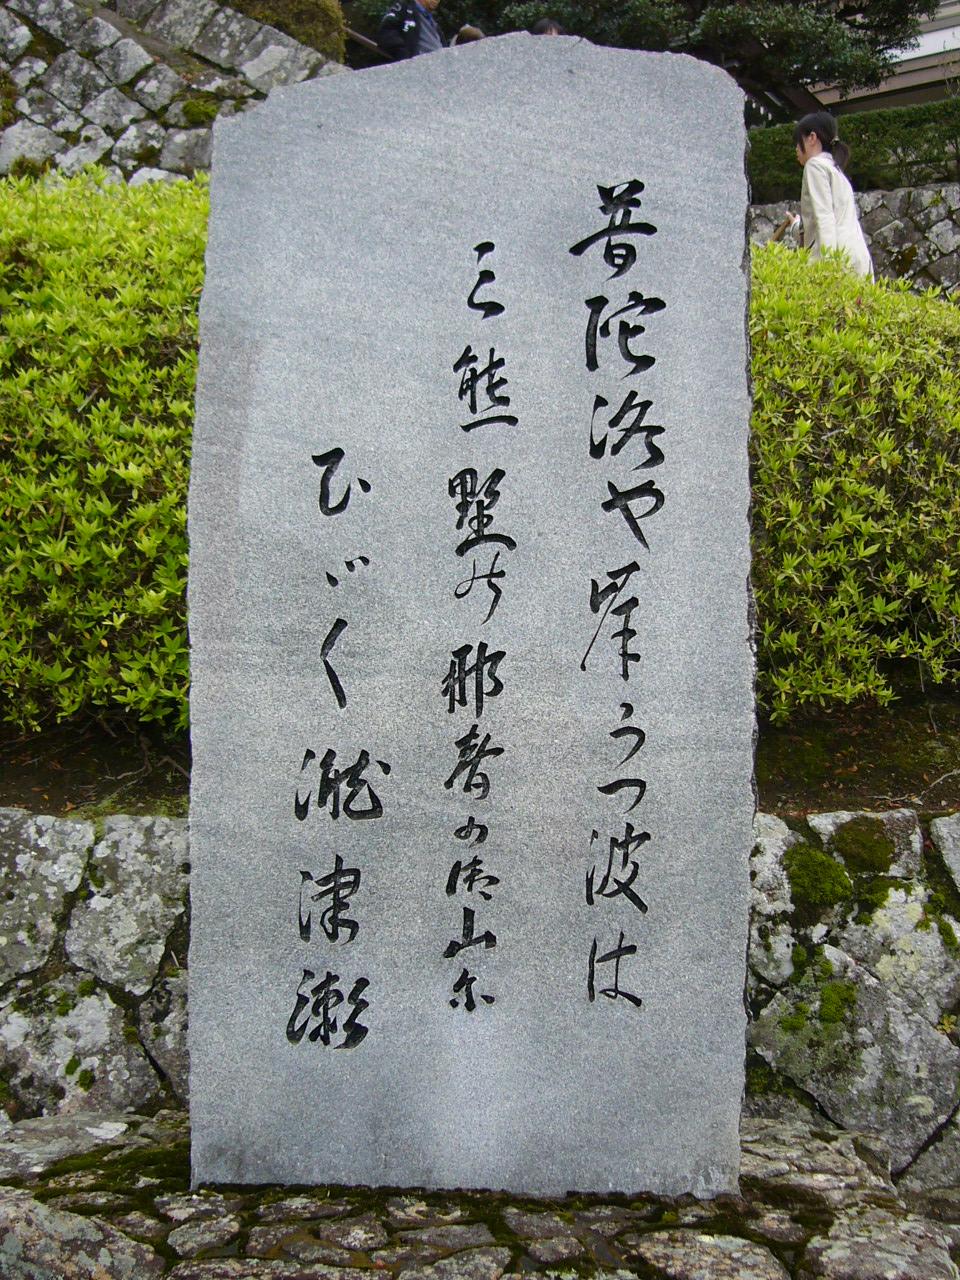 普陀洛や岸うつ波は
三熊墅能那智の御山尓
ひゞく瀧津瀬